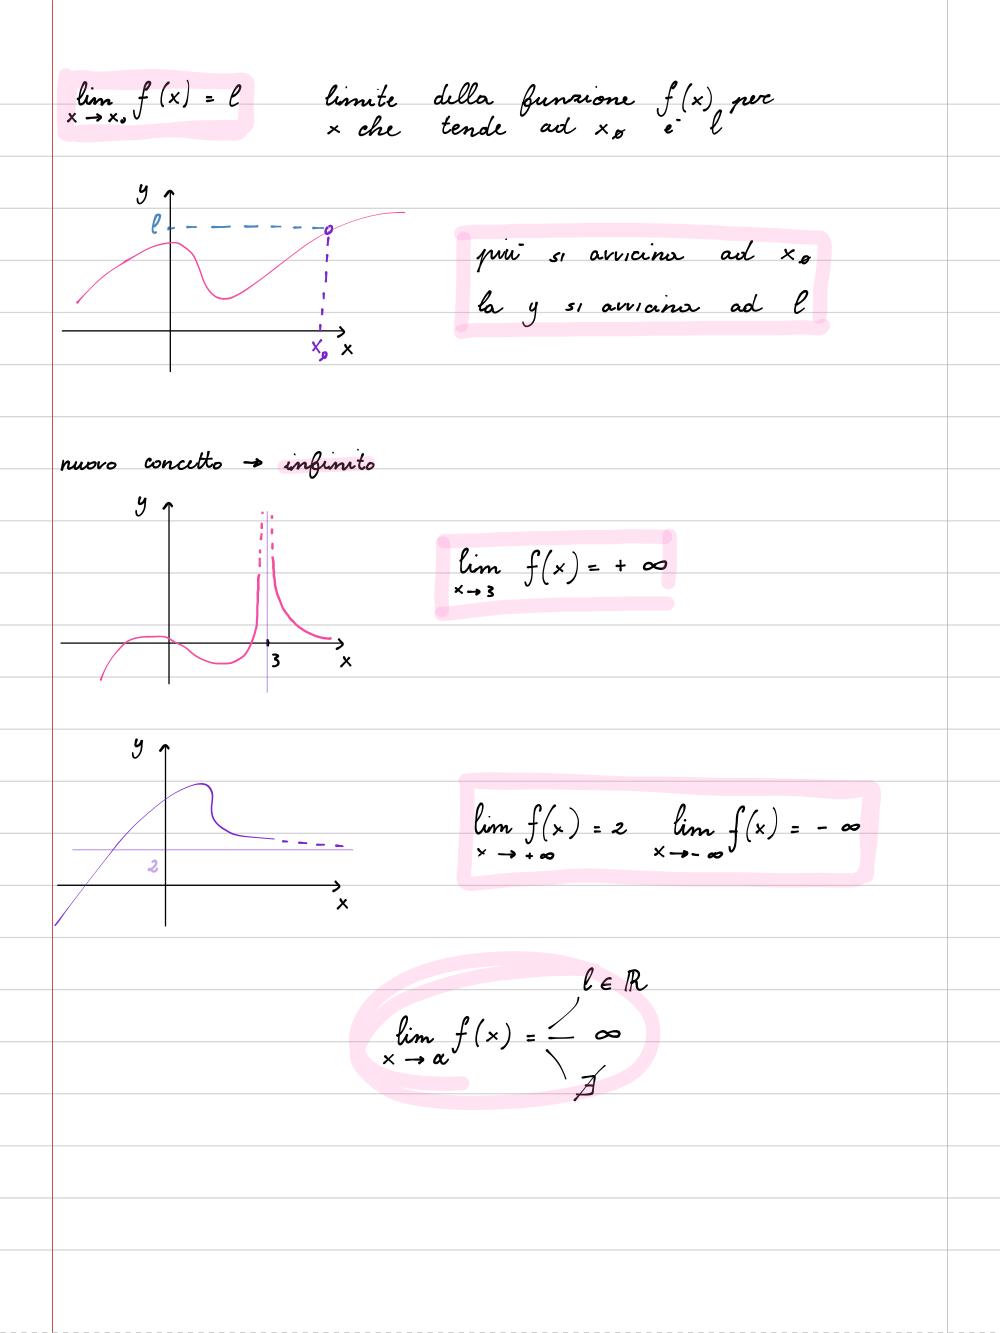 lim f(x) = l
x → x₀
limite della funzione f(x) per
x che tende ad x₀ è l
y
l
x₀ x
più si avvicina ad x₀
la y si avvicina ad l
nuovo concetto → infinito
y
3
x
lim f(x) = + ∞
x → 3
y
2
x
lim f(x) = 2 lim f(x) = - ∞
x → + ∞ x → - ∞
l ∈ ℝ
lim f(x) = — ∞
x → α
∄